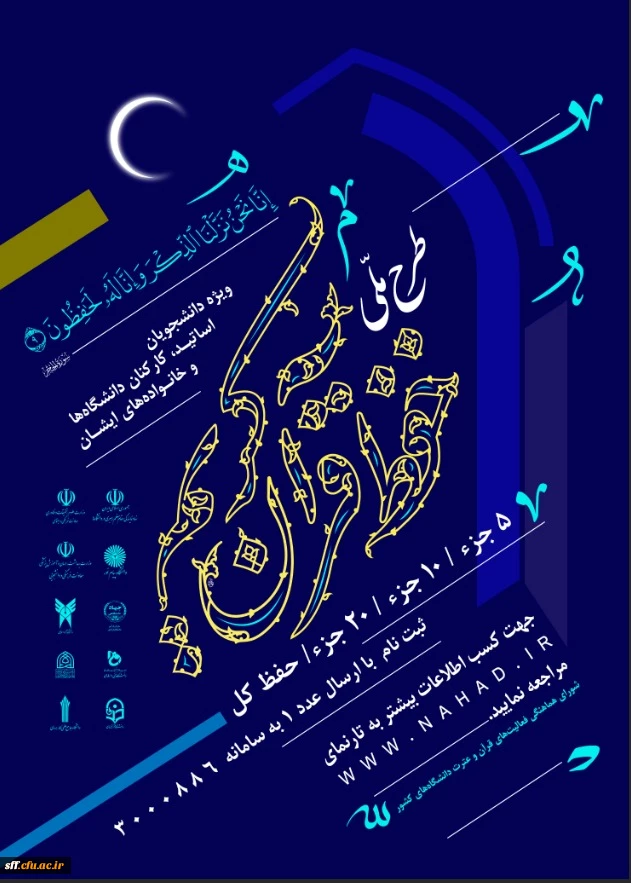 إِنَّا نَحْنُ نَزَّلْنَا الذِّكْرَ وَإِنَّا لَهُ لَحَافِظُونَ
۹
ویژه دانشجویان
اساتید، کارکنان دانشگاه‌ها
و خانواده‌های ایشان
طرح ملّی
حفظ قرآن کریم
۵ جزء / ۱۰ جزء / ۲۰ جزء / حفظ کل
ثبت نام با ارسال عدد ۱ به سامانه ۳۰۰۰۸۸۶
جهت کسب اطلاعات بیشتر به تارنمای
WWW.NAHAD.IR
مراجعه نمایید.
شورای هماهنگی فعالیت‌های قرآن و عترت دانشگاه‌های کشور
sff.cfu.ac.ir